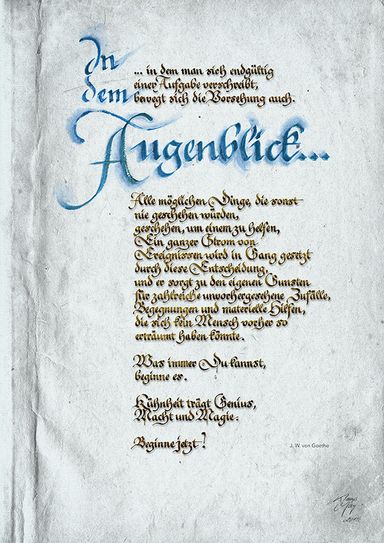 In
dem
Augenblick...
... in dem man sich endgültig
einer Aufgabe verschreibt,
bewegt sich die Vorsehung auch.
Alle möglichen Dinge, die sonst
nie geschehen würden,
geschehen, um einem zu helfen,
Ein ganzer Strom von
Ereignissen wird in Gang gesetzt
durch diese Entscheidung,
und er sorgt zu den eigenen Gunsten
für zahlreiche unvorhergesehene Zufälle,
Begegnungen und materielle Hilfen,
die sich kein Mensch vorher so
erträumt haben könnte.
Was immer Du kannst,
beginne es.
Kühnheit trägt Genius,
Macht und Magie.
Beginne jetzt!
J. W. von Goethe